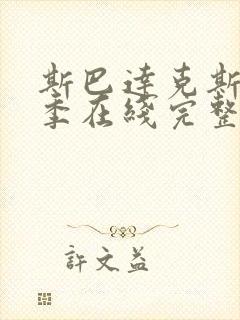 斯巴達克斯
季在綫完整
許文益